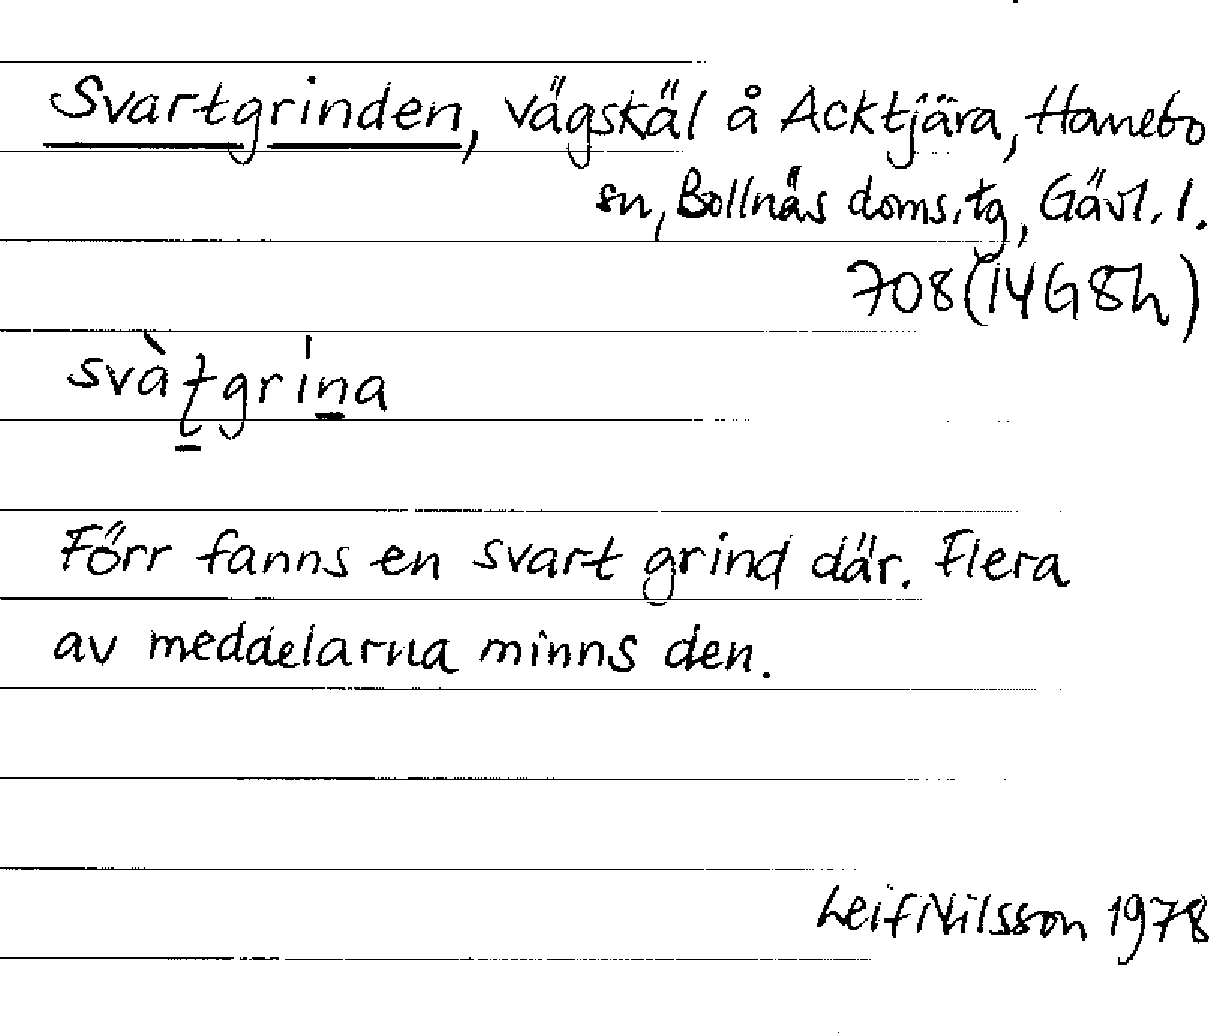 Svartgrinden, vägskäl å Acktjära, Hanebo
sn, Bollnäs doms.tg, Gävl. l.
708 (14G8h)
svàṯgrıṉa
Förr fanns en svart grind där. Flera
av meddelarna minns den.
Leif Nilsson 1978